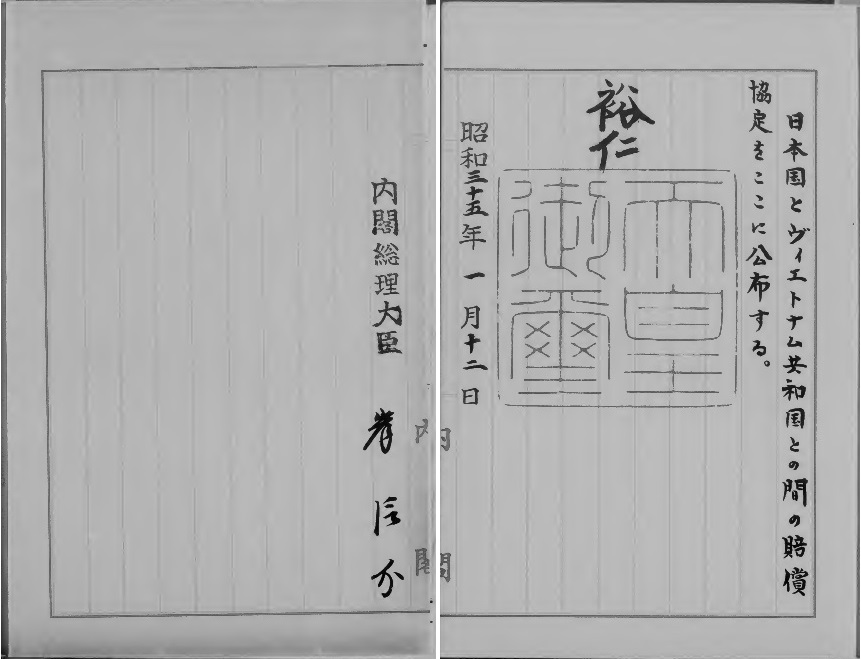 日本国とヴィエトナム共和国との間の賠償
協定をここに公布する。
裕仁
天皇
御璽
昭和三十五年一月十二日
内閣
内閣総理大臣 岸信介